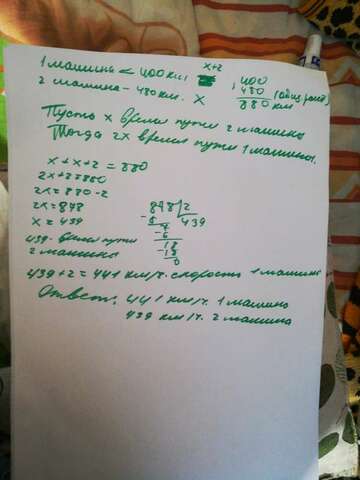 1 машина - 400 км. х+2
2 машина - 480 км. х
400
480
880 км (общ. расст)
Пусть х время пути 2 машины
Тогда 2х время пути 1 машины.
х+х+2=880
2х+2=880
2х=880-2
2х=878
х=439
878|2
-8 439
7
-6
18
-18
0
439- время пути
2 машины
439+2=441 км/ч. скорость 1 машины
Ответ: 441 км/ч. 1 машина
439 км/ч. 2 машина